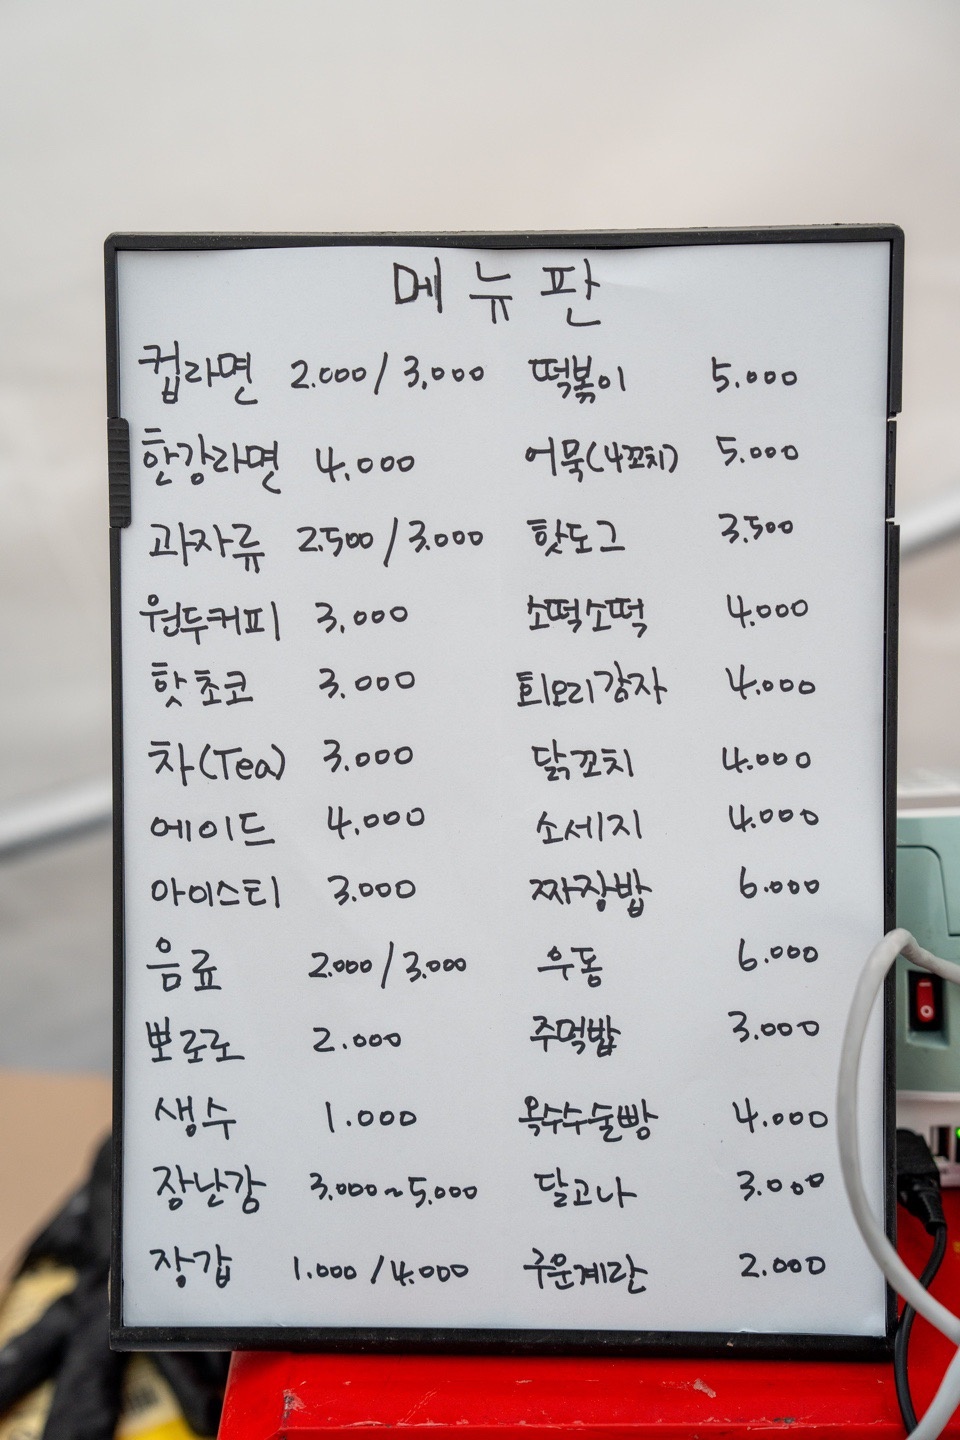 메뉴판
컵라면 2.000 / 3,000 떡볶이 5.000
한강라면 4.000 어묵(4꼬치) 5.000
과자류 2.500 / 3.000 핫도그 3.500
원두커피 3.000 소떡소떡 4.000
핫초코 3.000 회오리감자 4.000
차(Tea) 3.000 닭꼬치 4.000
에이드 4.000 소세지 4.000
아이스티 3.000 짜장밥 6.000
음료 2.000 / 3.000 우동 6.000
뽀로로 2.000 주먹밥 3.000
생수 1.000 옥수수술빵 4.000
장난감 3.000~5.000 달고나 3.000
장갑 1.000 / 4.000 구운계란 2.000